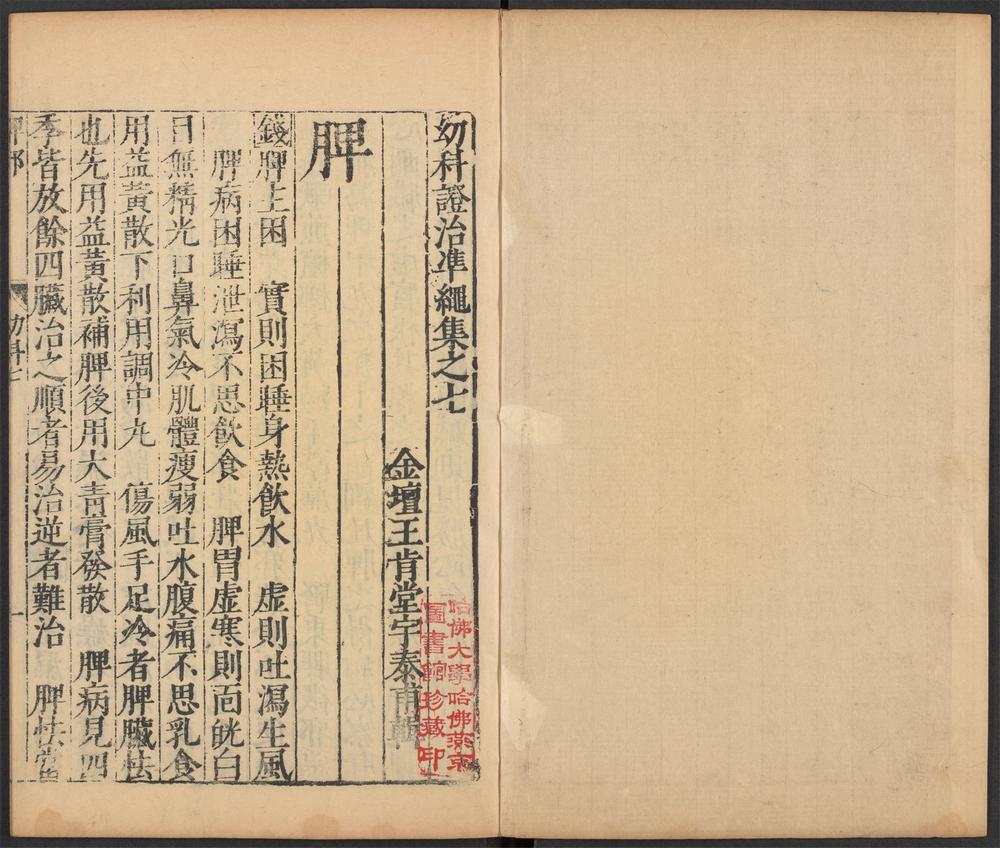 幼科證治準繩集之七
金壇王肯堂宇泰甫輯
哈佛大學哈佛燕京
圖書館珍藏印
脾
錢脾主困　實則困睡身熱飲水　虛則吐瀉生風
脾病困睡泄瀉不思飲食　脾胃虛寒則面㿠白
目無精光口鼻氣冷肌體瘦弱吐水腹痛不思乳食
用益黃散下利用調中丸　傷風手足冷者脾臟怯
也先用益黃散補脾後用大青膏發散　脾病見四
季皆放餘四臟治之順者易治逆者難治　脾怯當
脾部
幼科七
一